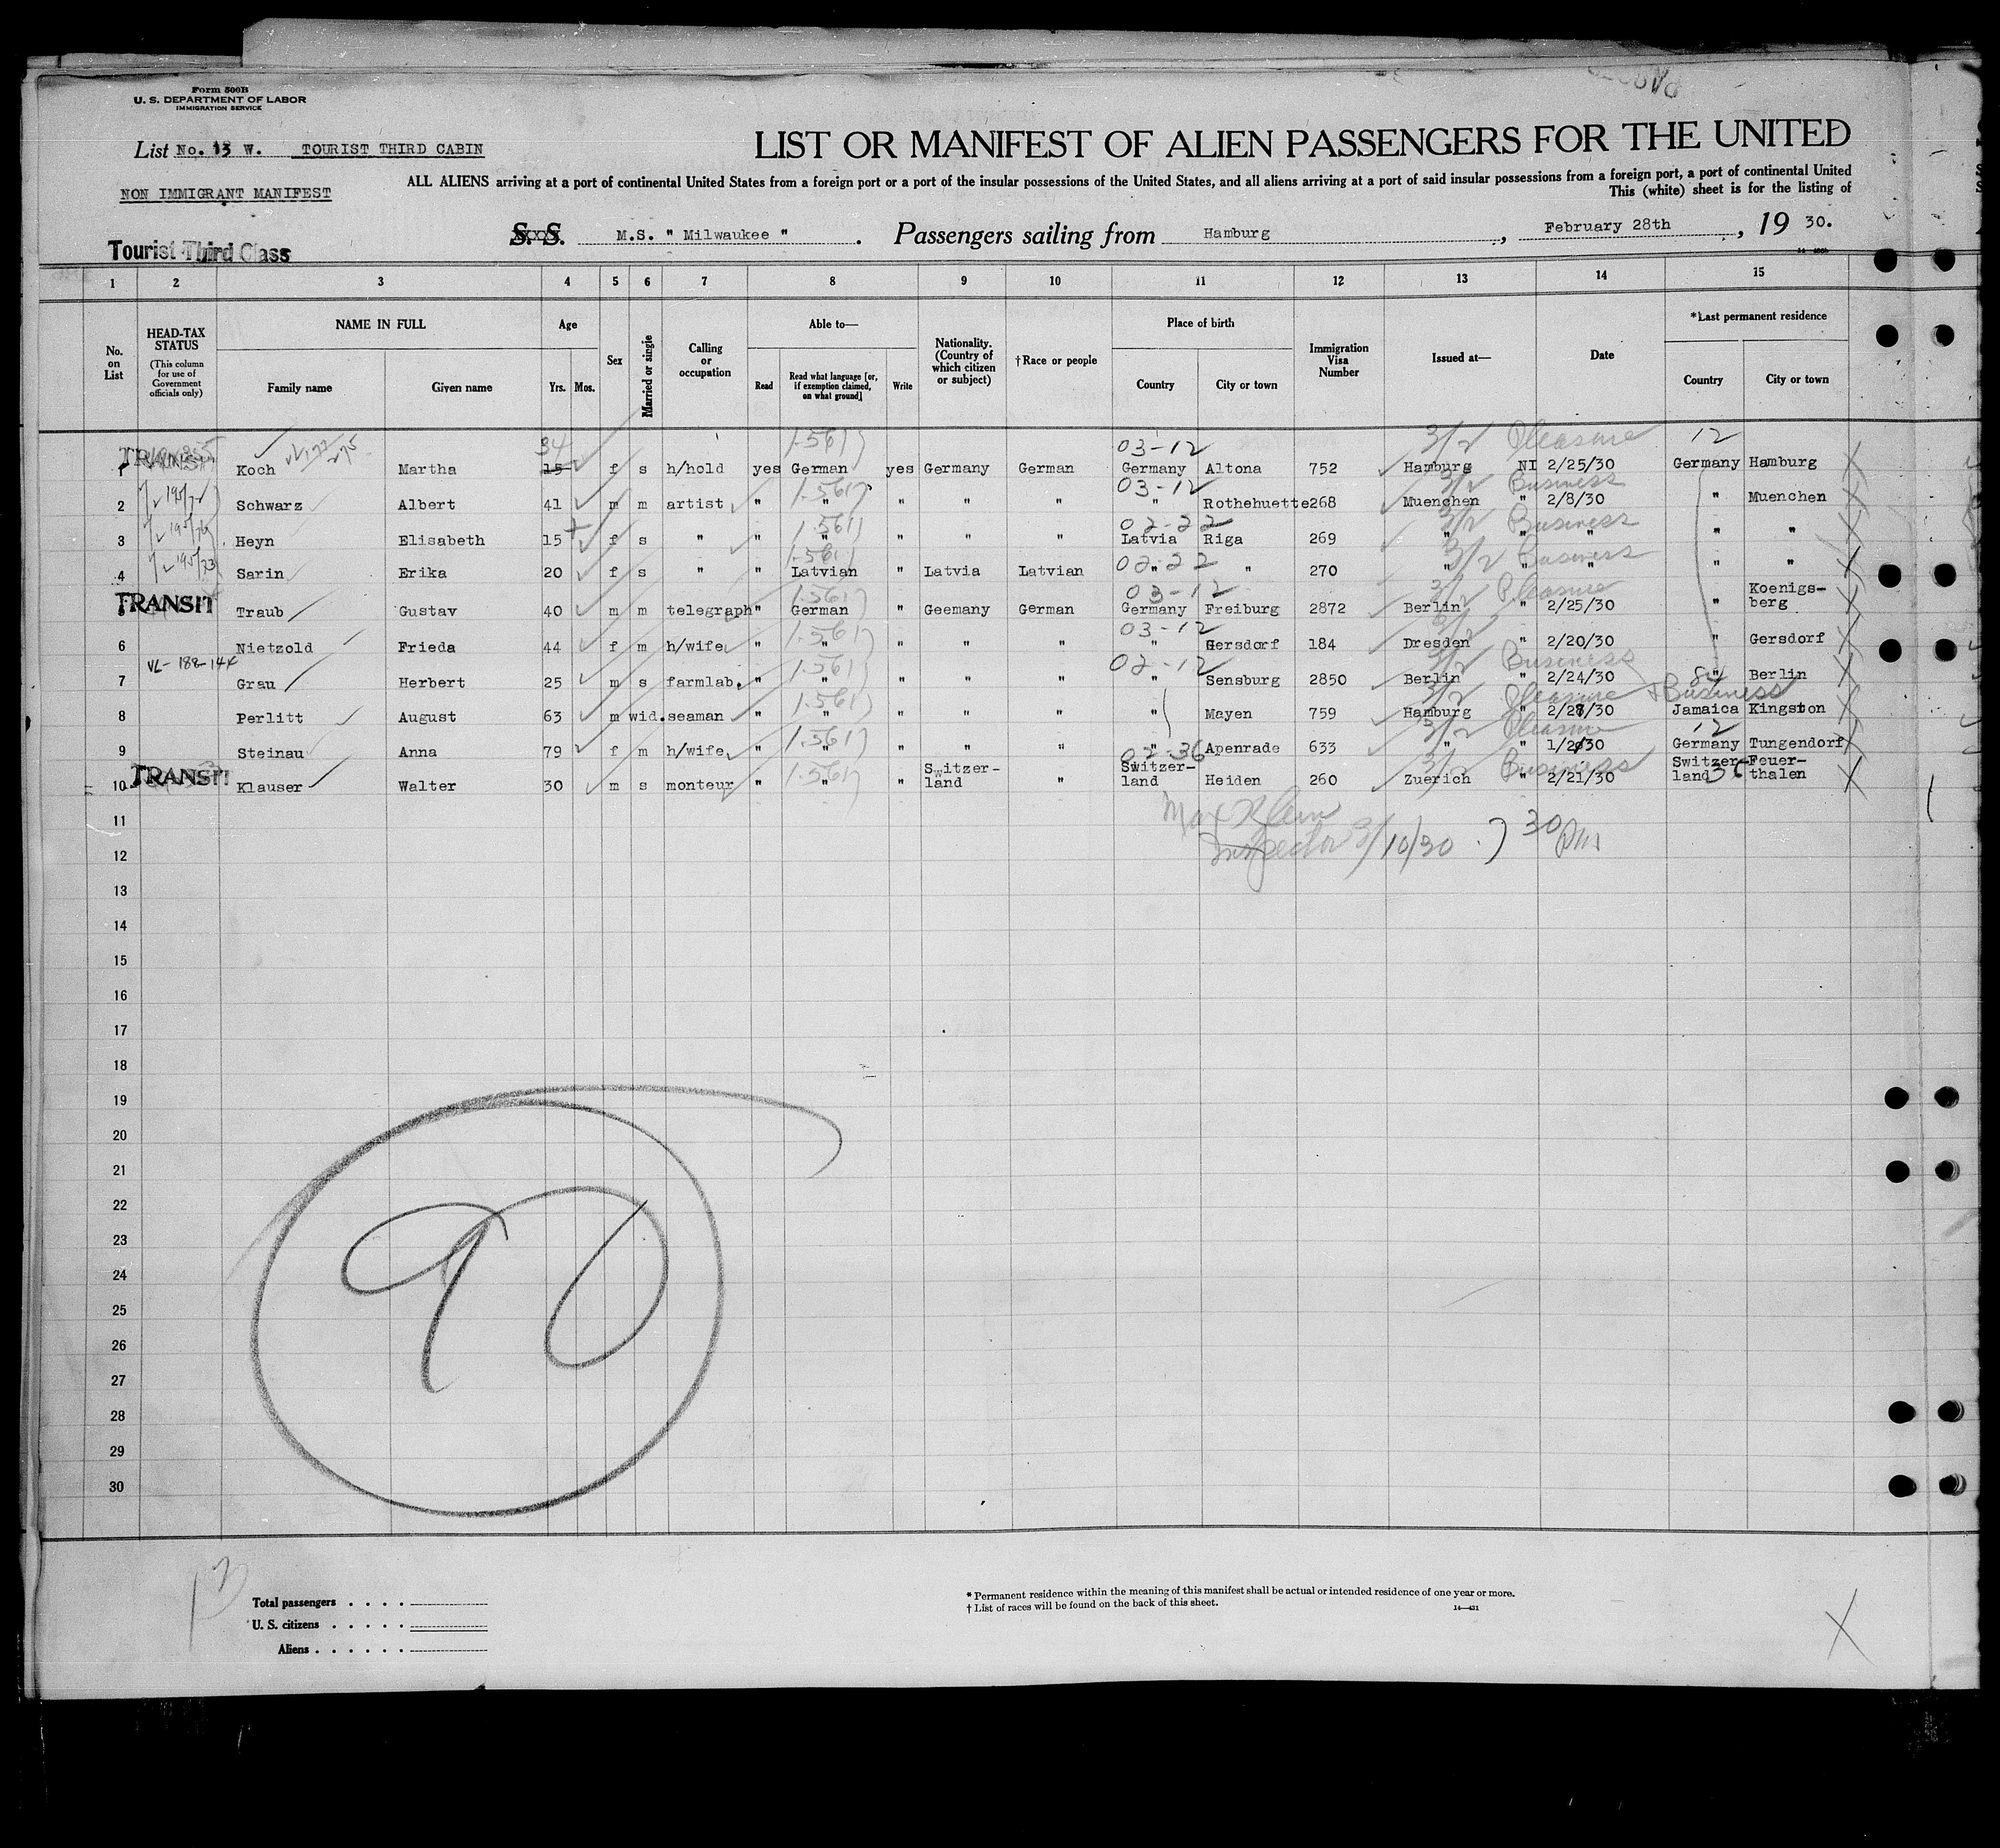 Form 500B
U. S. DEPARTMENT OF LABOR
IMMIGRATION SERVICE
List No. 13 W. TOURIST THIRD CABIN
LIST OR MANIFEST OF ALIEN PASSENGERS FOR THE UNITED
NON IMMIGRANT MANIFEST
ALL ALIENS arriving at a port of continental United States from a foreign port or a port of the insular possessions of the United States, and all aliens arriving at a port of said insular possessions from a foreign port, a port of continental United
This (white) sheet is for the listing of
S. S. M.S. " Milwaukee " . Passengers sailing from Hamburg , February 28th , 19 30.
Tourist Third Class
1 2 3 4 5 6 7 8 9 10 11 12 13 14 15
No. on List
HEAD-TAX STATUS (This column for use of Government officials only)
NAME IN FULL Family name Given name
Age Yrs. Mos.
Sex
Married or single
Calling or occupation
Able to— Read Read what language [or, if exemption claimed, on what ground] Write
Nationality. (Country of which citizen or subject)
†Race or people
Place of birth Country City or town
Immigration Visa Number
Issued at—
Date
*Last permanent residence Country City or town
34 1-561 03-12 3/2 Pleasure 12
1 TRANSIT Koch Martha 15 f s h/hold yes German yes Germany German Germany Altona 752 Hamburg NI 2/25/30 Germany Hamburg
1-561 03-12 3/2 Business
2 Schwarz Albert 41 m m artist " " " " " " Rothehuette 268 Muenchen " 2/8/30 " Muenchen
1-561 02-22 3/2 Business
3 Heyn Elisabeth 15 f s " " " " " " Latvia Riga 269 " " " " "
1-561 02-22 3/2 Business
4 Sarin Erika 20 f s " " Latvian " Latvia Latvian " " 270 " " " " "
1-561 03-12 3/2 Pleasure
5 TRANSIT Traub Gustav 40 m m telegraph " German " Geemany German Germany Freiburg 2872 Berlin " 2/25/30 " Koenigs-berg
1-561 03-12 3/2
6 Nietzold Frieda 44 f m h/wife " " " " " " Gersdorf 184 Dresden " 2/20/30 " Gersdorf
VL-188-14x 1-561 02-12 3/2 Business
7 Grau Herbert 25 m s farmlab. " " " " " " Sensburg 2850 Berlin " 2/24/30 " Berlin
1-561 3/2 Pleasure + Business
8 Perlitt August 63 m wid. seaman " " " " " " Mayen 759 Hamburg " 2/27/30 Jamaica Kingston
1-561 3/2 Pleasure 12
9 Steinau Anna 79 f m h/wife " " " " " " Apenrade 633 " " Germany Tungendorf
1-561 02-36 3/2 Business 36
10 TRANSIT Klauser Walter 30 m s monteur " " " Switzer-land " Switzer-land Heiden 260 Zuerich " 2/21/30 Switzer-land Feuer-thalen
11 Max Klein
12 Inspector 3/10/30 . 7 30 PM
13
14
15
16
17
18
19
20
21
22
23
24
25
26
27
28
29
30
90
Total passengers . . . .
U. S. citizens . . . . .
Aliens . . . . . .
* Permanent residence within the meaning of this manifest shall be actual or intended residence of one year or more.
† List of races will be found on the back of this sheet.
14—431